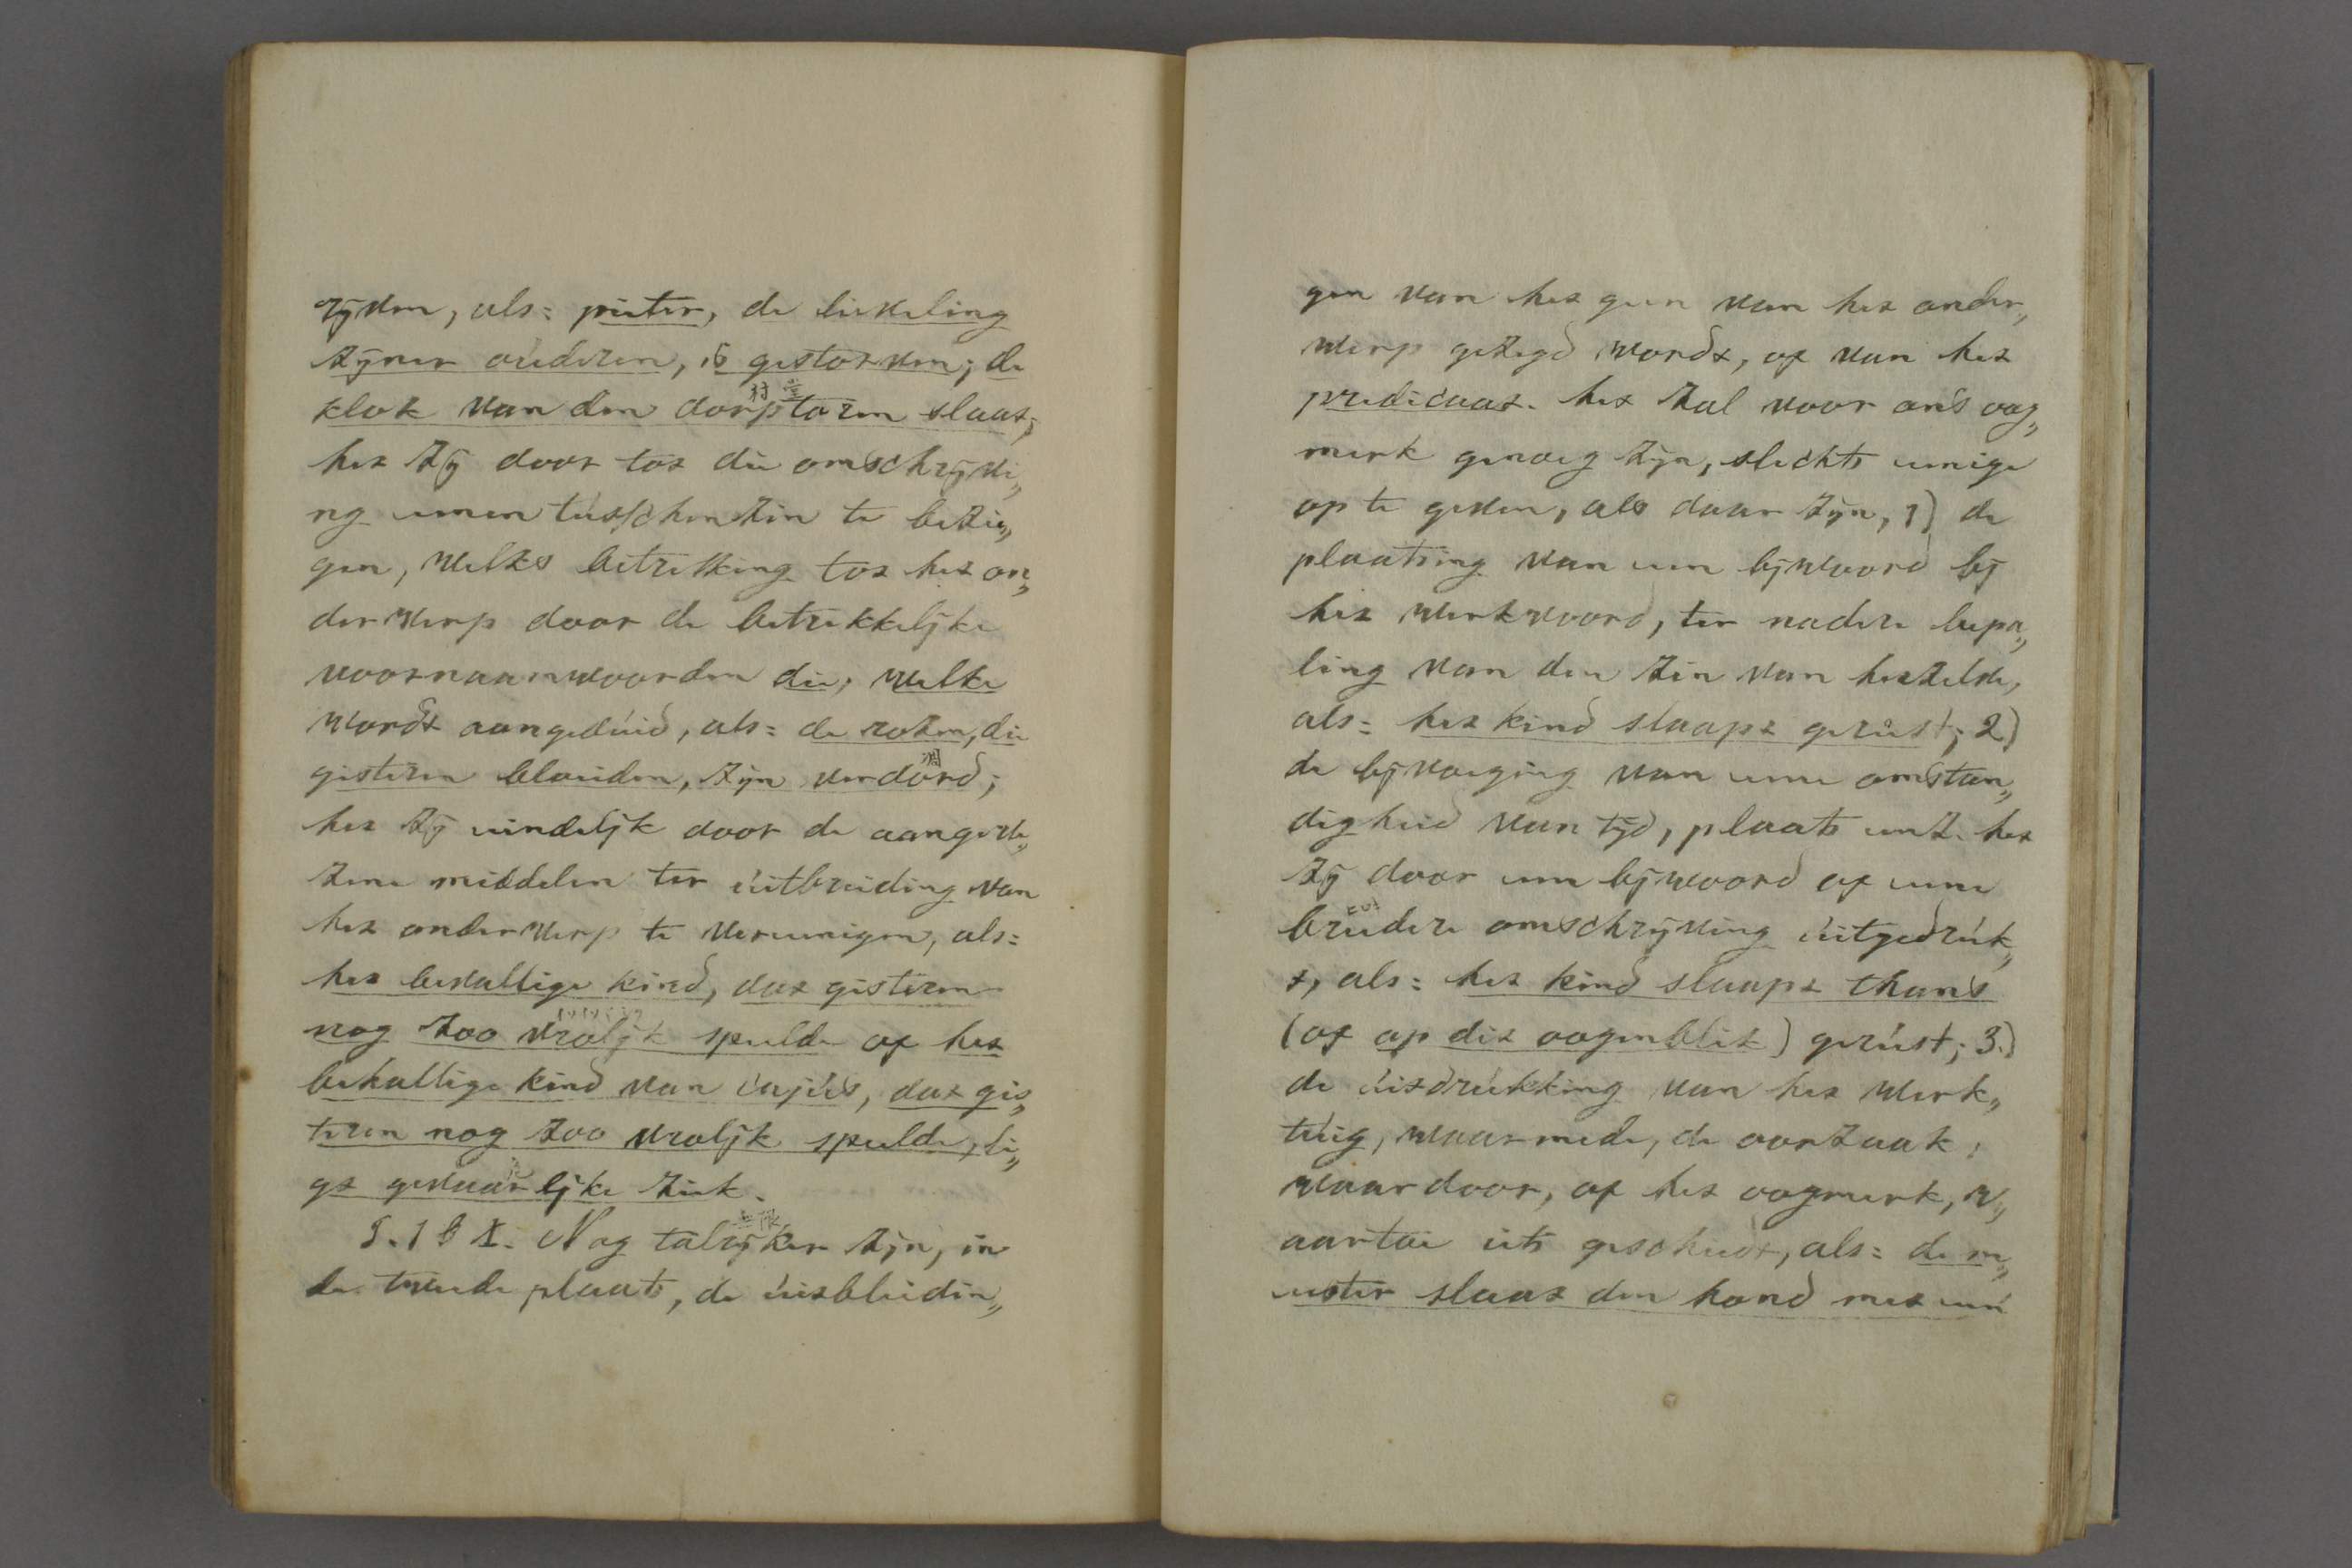 zijven, als: pieter, de lieveling
zijner ouderen, is gestorven; de
klok van den dorptoren slaat;
het zij door tot die omschrijvi„
ng eenen tusschenzin te bezie„
gen, welks betrekking tot het on„
derwerp door de betrekkelijke
voornaamwoorden die, welke
wordt aangeduid, als: de rozen, die
gisteren bloeiden, zijn verdord;
het zij eindelijk door de aangewe„
zene middelen ter uitbreiding van
het onderwerp te vereenigen, als:
het bevallige kind, dat gisteren
nog zoo vrolijk speelde of het
bevallige kind van cajus, dat gis„
teren nog zoo vrolijk speelde, li„
gt gevaarlijke ziek.
§. 181. Nog talrijker zijn, in
de tweede plaats, de uitbreidin„
村 堂
凋
無限
gen van het geen van het onder„
werp gezegd wordt, of van het
predicaat. het zal voor ons oog„
merk genoeg zijn, slechts eenige
op te geven, als daar zijn, 1) de
plaatsing van een bijwoord bij
het werkwoord, ter nadere bepa„
ling van den zin van hetzelve,
als: het kind slaapt gerust; 2)
de bijvoeging van eene omstan„
digheid van tijd, plaats enz. het
zij door een bijwoord of eene
breedere omschrijving uitgedruk„
t, als: het kind slaapt thans
(of op dit oogenblik) gerust; 3.)
de uitdrukking van het werk„
tuig, waarmede, de oorzaak,
waardoor, of het oogmerk, w„
aartoe iets geschiedt, als: de m„
eester slaat den hond met een